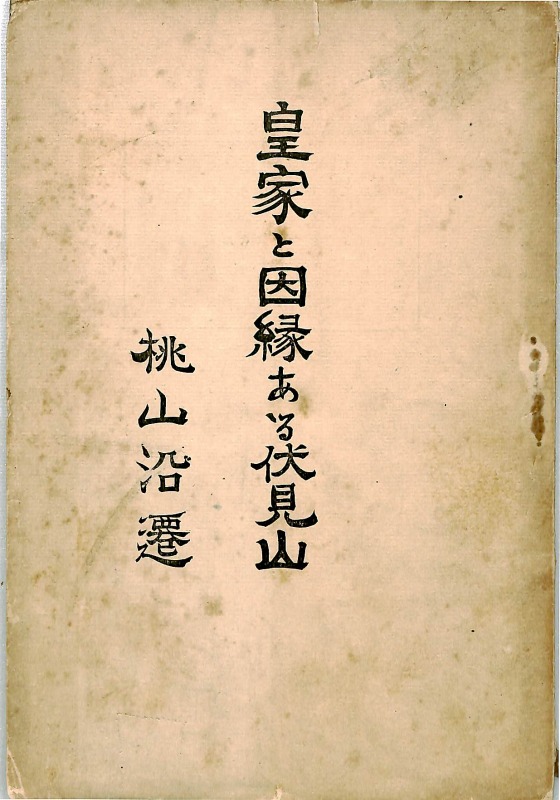 皇家と因縁ある伏見山
桃山沿遷